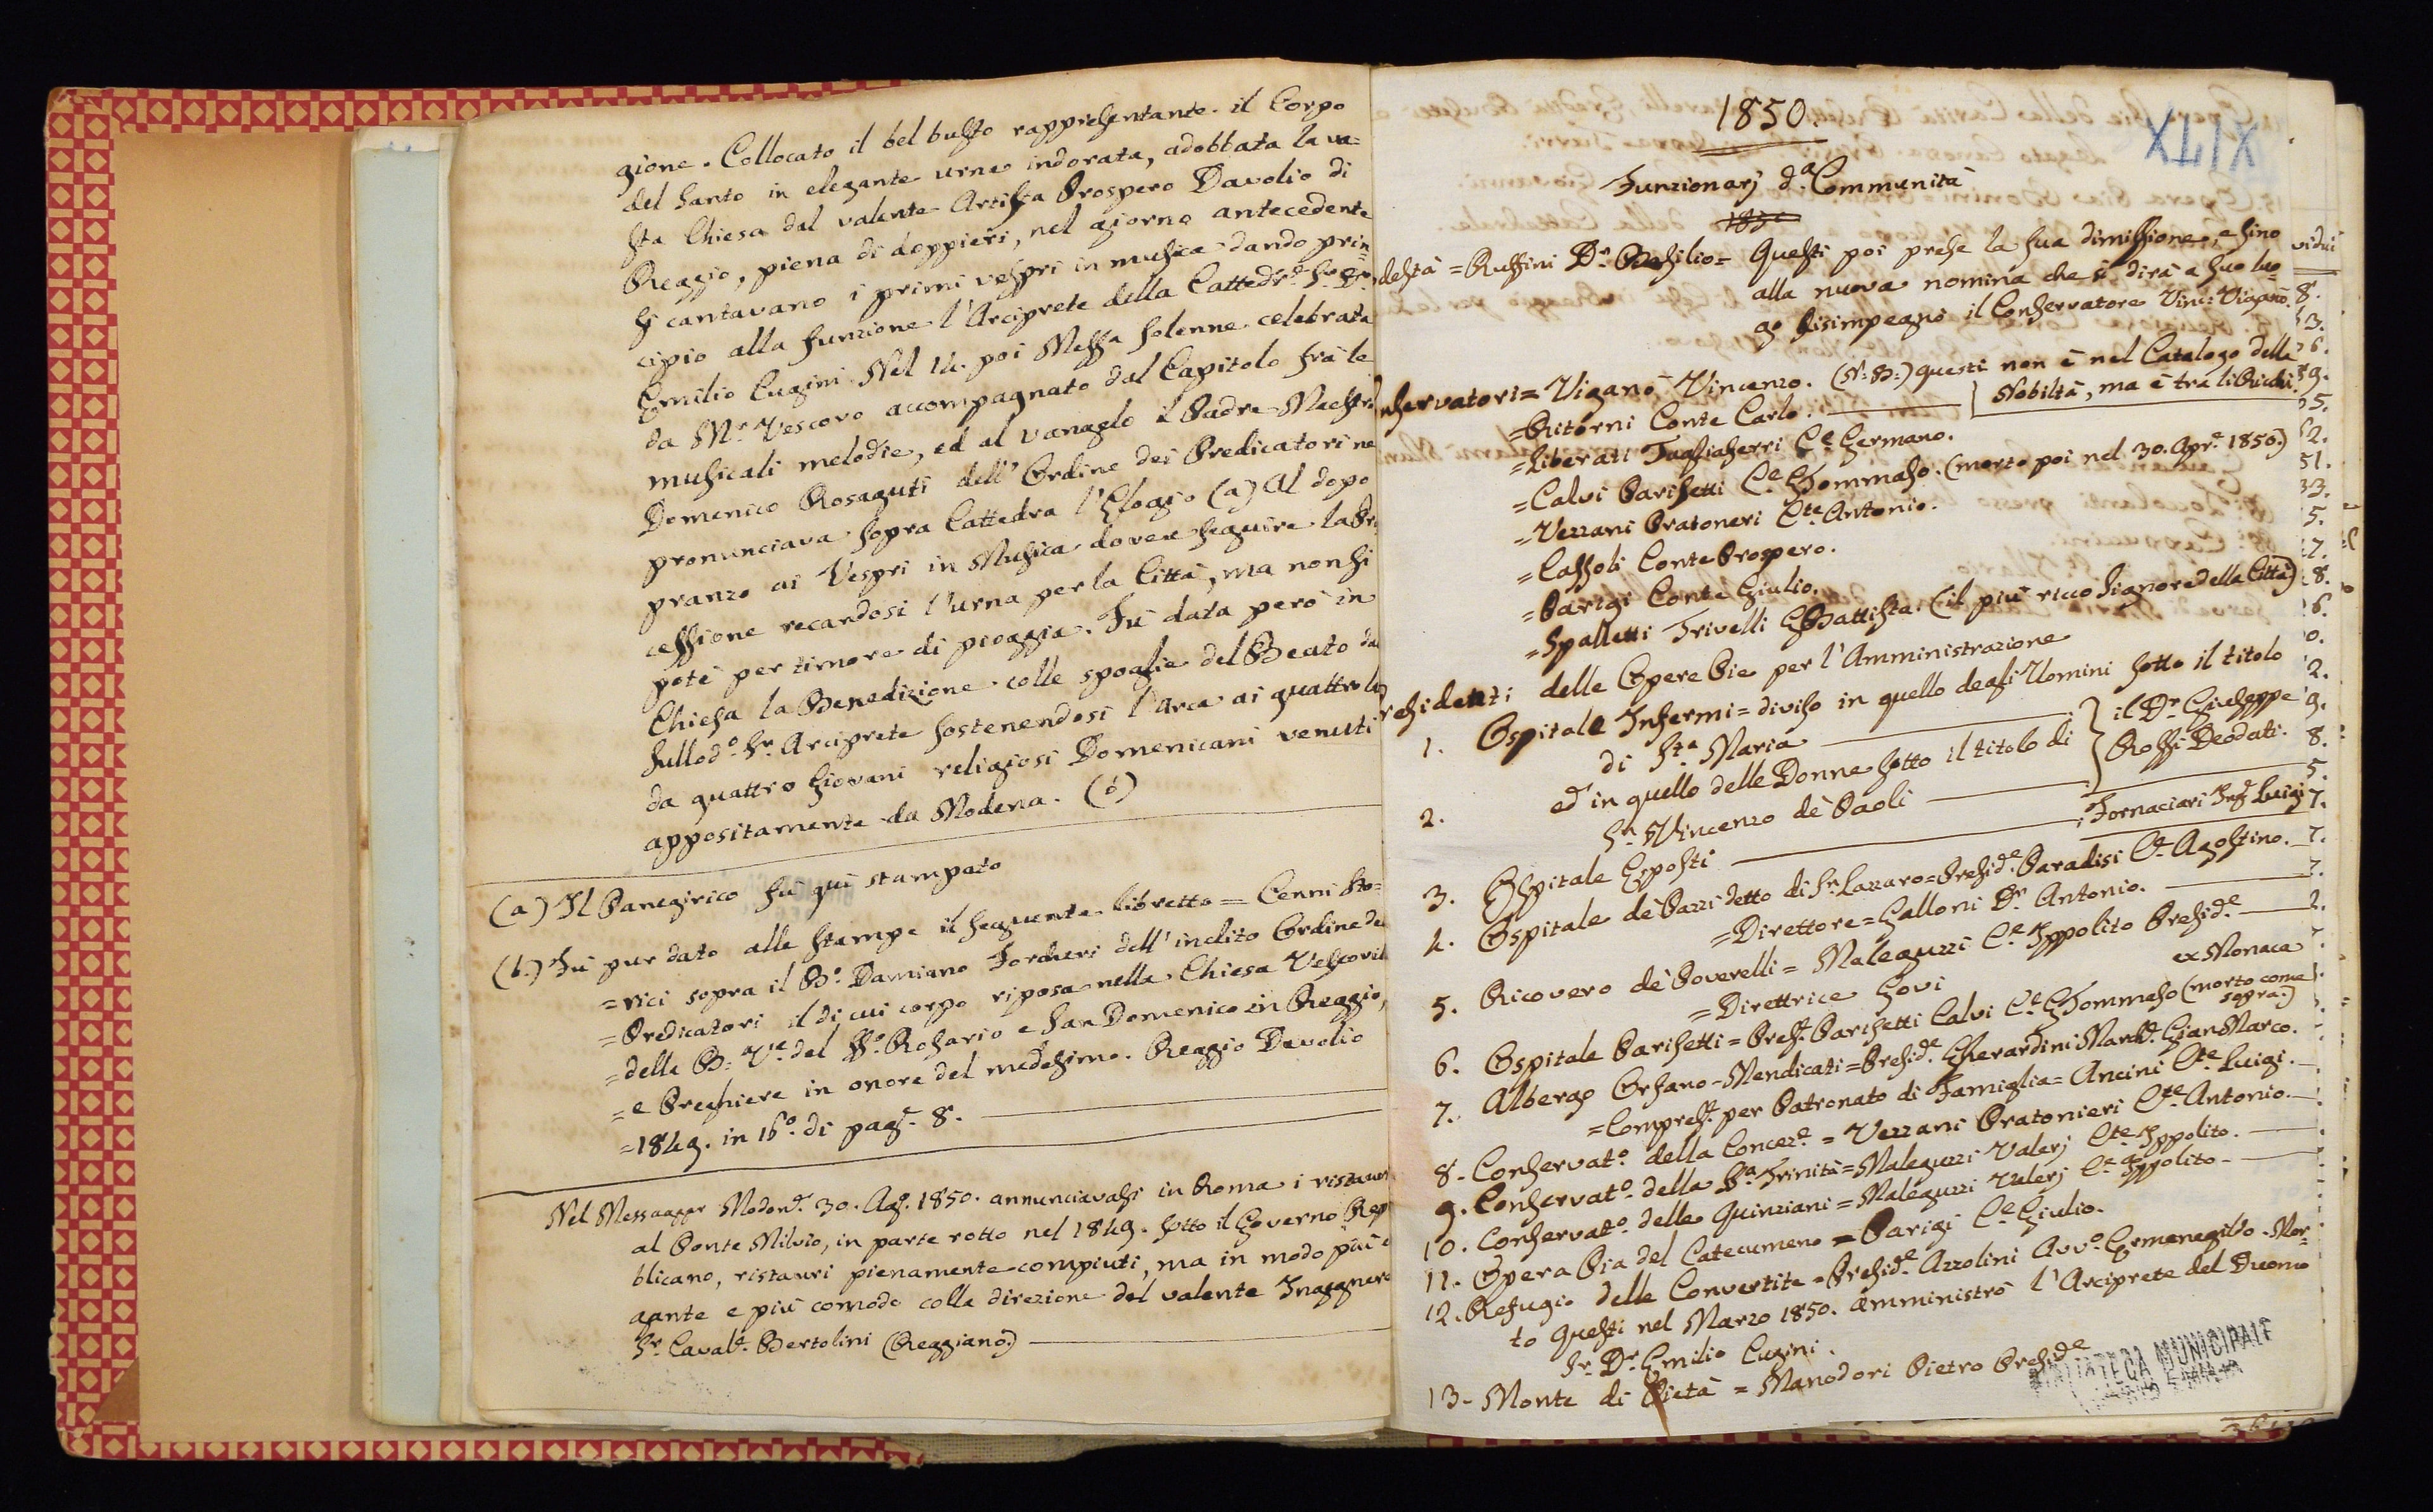 gione. Collocato il bel busto rappresentante il Corpo
del Santo in elegante urna indorata, adobbata la va=
sta Chiesa dal valente Artista Prospero Davolio di
Reggio, piena di doppieri, nel giorno antecedente
si cantavano i primi vespri in musica dando prin=
cipio alla funzione l'Arciprete della Cattedre. Sr. Dr.
Emilio Cugini. Nel 14. poi Messa solenne celebrata
da Mr. Vescovo accompagnato dal Capitolo frà le
musicali melodie, ed al vanaglo il Padre Maestro
Domenico Rosaguti dell'Ordine dei Predicatori ne
pronunciava sopra Cattedra l'Elogio (a) Al dopo
pranzo ai Vespri in Musica dovea seguire la Pr
cessione recandosi l'urna per la Città, ma non si
potè per timore di pioggia. Fù data però in
Chiesa la Benedizione colle spoglie del Beato da
sullodo. Sr. Arciprete sostenendosi l'Arca ai quattro la
da quattro Giovani religiosi Domenicani venuti
appositamente da Modena. (b)
(a) Il Panegirico fù quì stampato
(b.) Fù pur dato alle stampe il seguente libretto = Cenni sto=
=rici sopra il Bo. Damiano Forcheri dell'inclito Ordine de
=Predicatori il di cui corpo riposa nella Chiesa Vescovil
=della B.a Ve. del SSo. Rosario e San Domenico in Reggio,
=e Preghiere in onore del medesimo. Reggio Davolio
=1849. in 16o. di page. 8.
Nel Messagger Modone. 30. Ago. 1850. annunciavasi in Roma i ristauri
al Ponte Milvio, in parte rotto nel 1849. sotto il Governo Rep
blicano, ristauri pienamente compiuti, ma in modo più e
gante e più comodo colla direzione del valente Ingegnere
Sr. Cavale. Bertolini (Reggiano.)
XLIX
1850.
Funzionarj da. Communità
1850
destà = Ruffini Dr. Basilio = Questi poi prese la sua dimissione, e fino
alla nuova nomina che si dirà a suo luo=
go disimpegnò il Conservatore Vinc: Viganò.
nservatori = Viganò Vincenzo. (N:B:) questi non è nel Catalogo della
Nobiltà, ma è tra li Ricchi.
=Ritorni Conte Carlo.
=Liberati Tagliaferri Ce. Germano.
=Calvi Parisetti Ce. Tommaso. (morto poi nel 30. Apre. 1850.)
=Vezzani Pratoneri Cte. Antonio.
=Cassoli Conte Prospero.
=Parigi Conte Giulio.
=Spalletti Trivelli GBattista (il più ricco Signore della Città)
residenti delle Opere Pie per l'Amministrazione
1. Ospitale Infermi = diviso in quello degli Uomini sotto il titolo
di Sta. Maria
2. ed in quello delle Donne sotto il titolo di
Sn. Vincenzo dè Paoli
il Dr. Giuseppe
Rossi Deodati.
3. Ospitale Esposti Fornaciari Inge. Luigi
4. Ospitale dè Pazzi detto di Sn. Lazzaro = Preside. Paradisi Ce. Agostino.
=Direttore = Galloni Dr. Antonio.
5. Ricovero dè Poverelli = Maleguzzi Ce. Ippolito Preside.
=Direttrice Govi ex Monaca
6. Ospitale Parisetti = Prese. Parisetti Calvi Ce. Tommaso (morto come
sopra.)
7. Albergo Orfano-Mendicati = Preside. Gherardini Marche. Gian Marco.
=Comprese. per Patronato di Famiglia = Ancini Cte. Luigi.
8. Conservato. della Conceze. = Vezzani Pratonieri Cte. Antonio.
9. Conservato. della SSa. Trinità = Maleguzzi Valerj Cte. Ippolito.
10. Conservato. delle Quinziani = Maleguzzi Valerj Ce. Ippolito.
11. Opera Pia del Catecumeno = Parigi Ce. Giulio.
12. Refugio delle Convertite = Preside. Azzolini Avvo. Ermenegildo. Mor=
to questi nel Marzo 1850. amministrò l'Arciprete del Duomo
Sr. Dr. Emilio Cugini.
13. Monte di Pietà = Manodori Pietro Preside.
MUNICIPALE